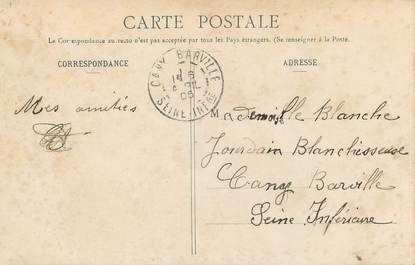 CARTE POSTALE
La Correspondance au recto n'est pas acceptée par tous les Pays étrangers. (Se renseigner à la Poste.
CORRESPONDANCE
ADRESSE
CANY BARVILLE
SEINE INFRE
Mes amitiés
Mademoiselle Blanche
Jourdain Blanchisseuse
Cany Barville
Seine Inférieure